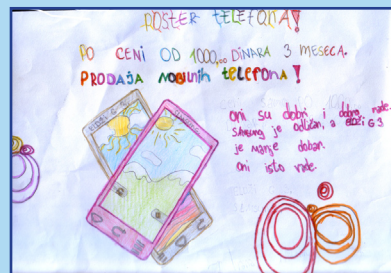 POSTER TELEFONA!
PO CENI OD 1000,00 DINARA 3 MESECA.
PRODAJA MOBILNIH TELEFONA!
ONI SU dobri i dobro rade.
SAMSUNG je odličan, a G3
je manje dobar.
Oni isto rade.